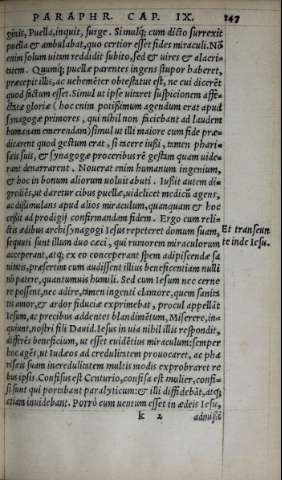 PARAPHR. CAP. IX. 247
ginis, Puella, inquit, surge. Simulq; cum dicto surrexit
puella & ambulabat, quo certior esset fides miraculi. Nō
enim solum uitam reddidit subito, sed & uires & alacri=
tatem. Quumq; puellæ parentes ingens stupor haberet,
præcepit illis, ac uehemēter obtestatus est, ne cui dicerēt
quod factum esset. Simul ut ipse uitaret suspicionem affe=
ctatæ gloriæ ( hoc enim potißimum agendum erat apud
synagogæ primores, qui nihil non faciebant ad laudem
humanam emerendam) simul ut illi maiore cum fide præ=
dicarent quod gestum erat, si tacere iußi, tamen phari=
sæis suis, & synagogæ proceribus rē gestam quam uide=
rant denarrarent. Nouerat enim humanum ingenium,
& hoc in bonum aliorum uoluit abuti. Iußit autem di=
gressus, ut daretur cibus puellæ, uidelicet medicū agens,
ac dißimulans apud alios miraculum, quanquam & hoc
ceßit ad prodigij confirmandam fidem. Ergo cum reli=
ctis ædibus archisynagogi Iesus repeteret domum suam,
sequuti sunt illum duo cæci, qui rumorem miraculorum
acceperant, atq; ex eo conceperant spem adipiscendæ sa
nitatis, præsertim cum audissent illius beneficentiam nulli
nō patere, quantumuis humili. Sed cum Iesum nec cerne
re possent, nec adire, tamen ingenti clamore, quem sanita
tis amor, & ardor fiduciæ exprimebat, procul appellāt
Iesum, ac precibus addentes blandimētum, Miserere, in=
quiunt, nostri fili Dauid. Iesus in uia nihil illis respondit,
differēs beneficium, ut esset euidētius miraculum: semper
hoc agēs, ut Iudæos ad credulitatem prouocaret, ac pha
risæis suam incredulitatem multis modis exprobraret re
bus ipsis. Confisus est Centurio, confisa est mulier, confi=
si sunt qui portabant paralyticum: & illi diffidebāt, atq;
etiam inuidebant. Porrò cum uentum esset in ædeis Iesu,
k 2
Et transeun
te inde Iesu.